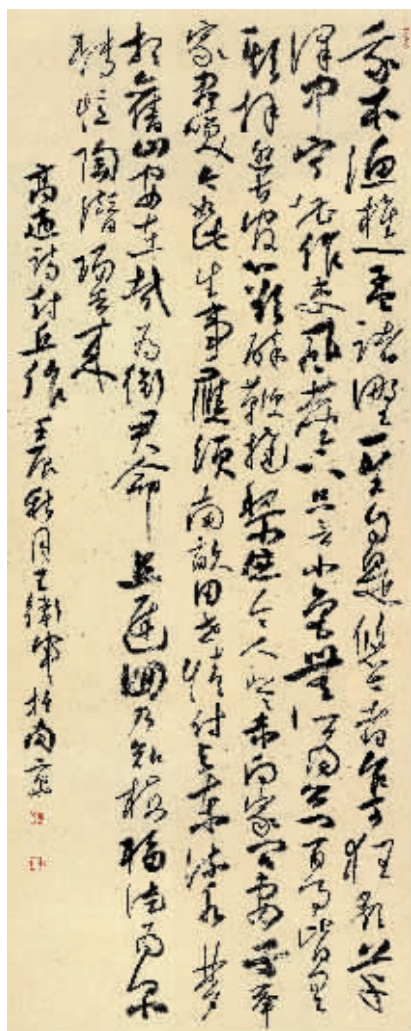 我本漁樵孟諸野一生自是悠悠者乍可狂歌草
澤中寧堪作吏風塵下只言小邑無所為公門百事皆有
期拜迎長官心欲碎鞭撻黎庶令人悲来向家問妻子舉
家盡笑今如此生事應須南畝田世情付與東流水夢
想舊山安在哉為銜君命且遲迴乃知梅福徒為爾
轉憶陶潛歸去来
高適詩封丘作壬辰秋月王衛軍於南京